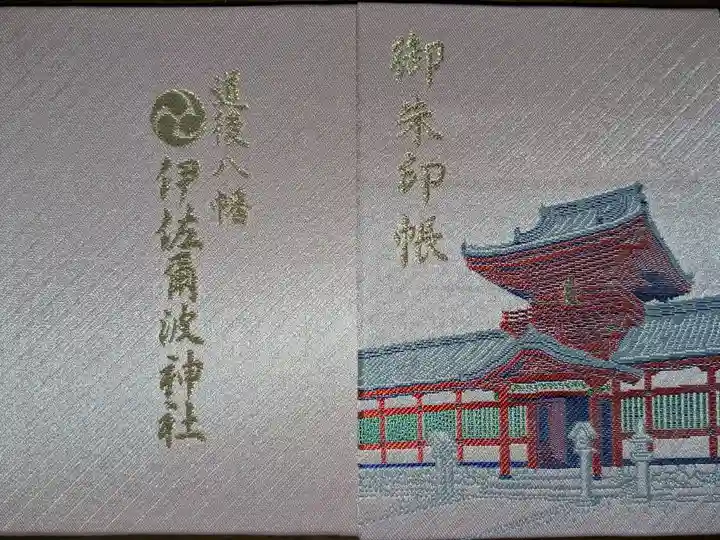 御朱印帳
道後八幡
伊佐爾波神社